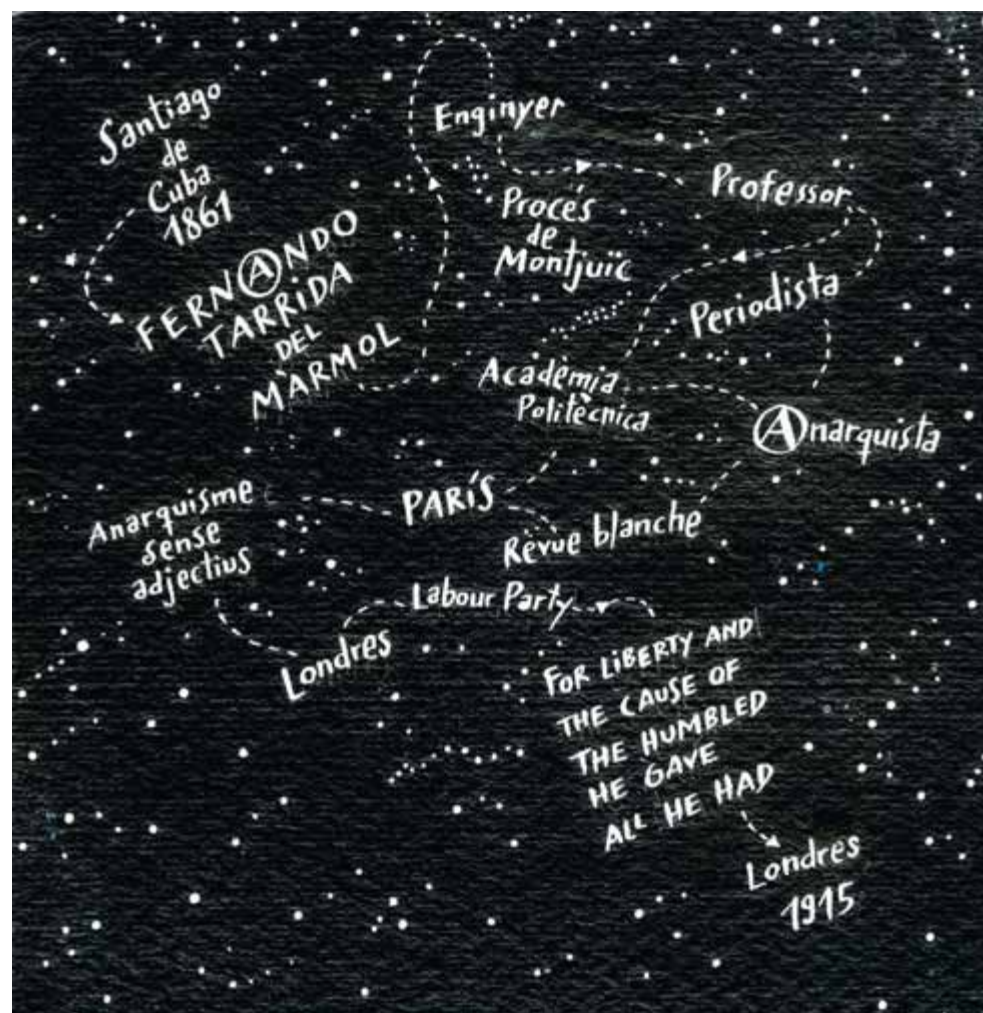 Santiago
de
Cuba
1861
FERNANDO
TARRIDA
DEL
MÀRMOL
Enginyer
Procés
de
Montjuïc
Professor
Periodista
Acadèmia
Politècnica
Anarquista
PARÍS
Révue blanche
Anarquisme
sense
adjectius
Londres
Labour Party
FOR LIBERTY AND
THE CAUSE OF
THE HUMBLED
HE GAVE
ALL HE HAD
Londres
1915